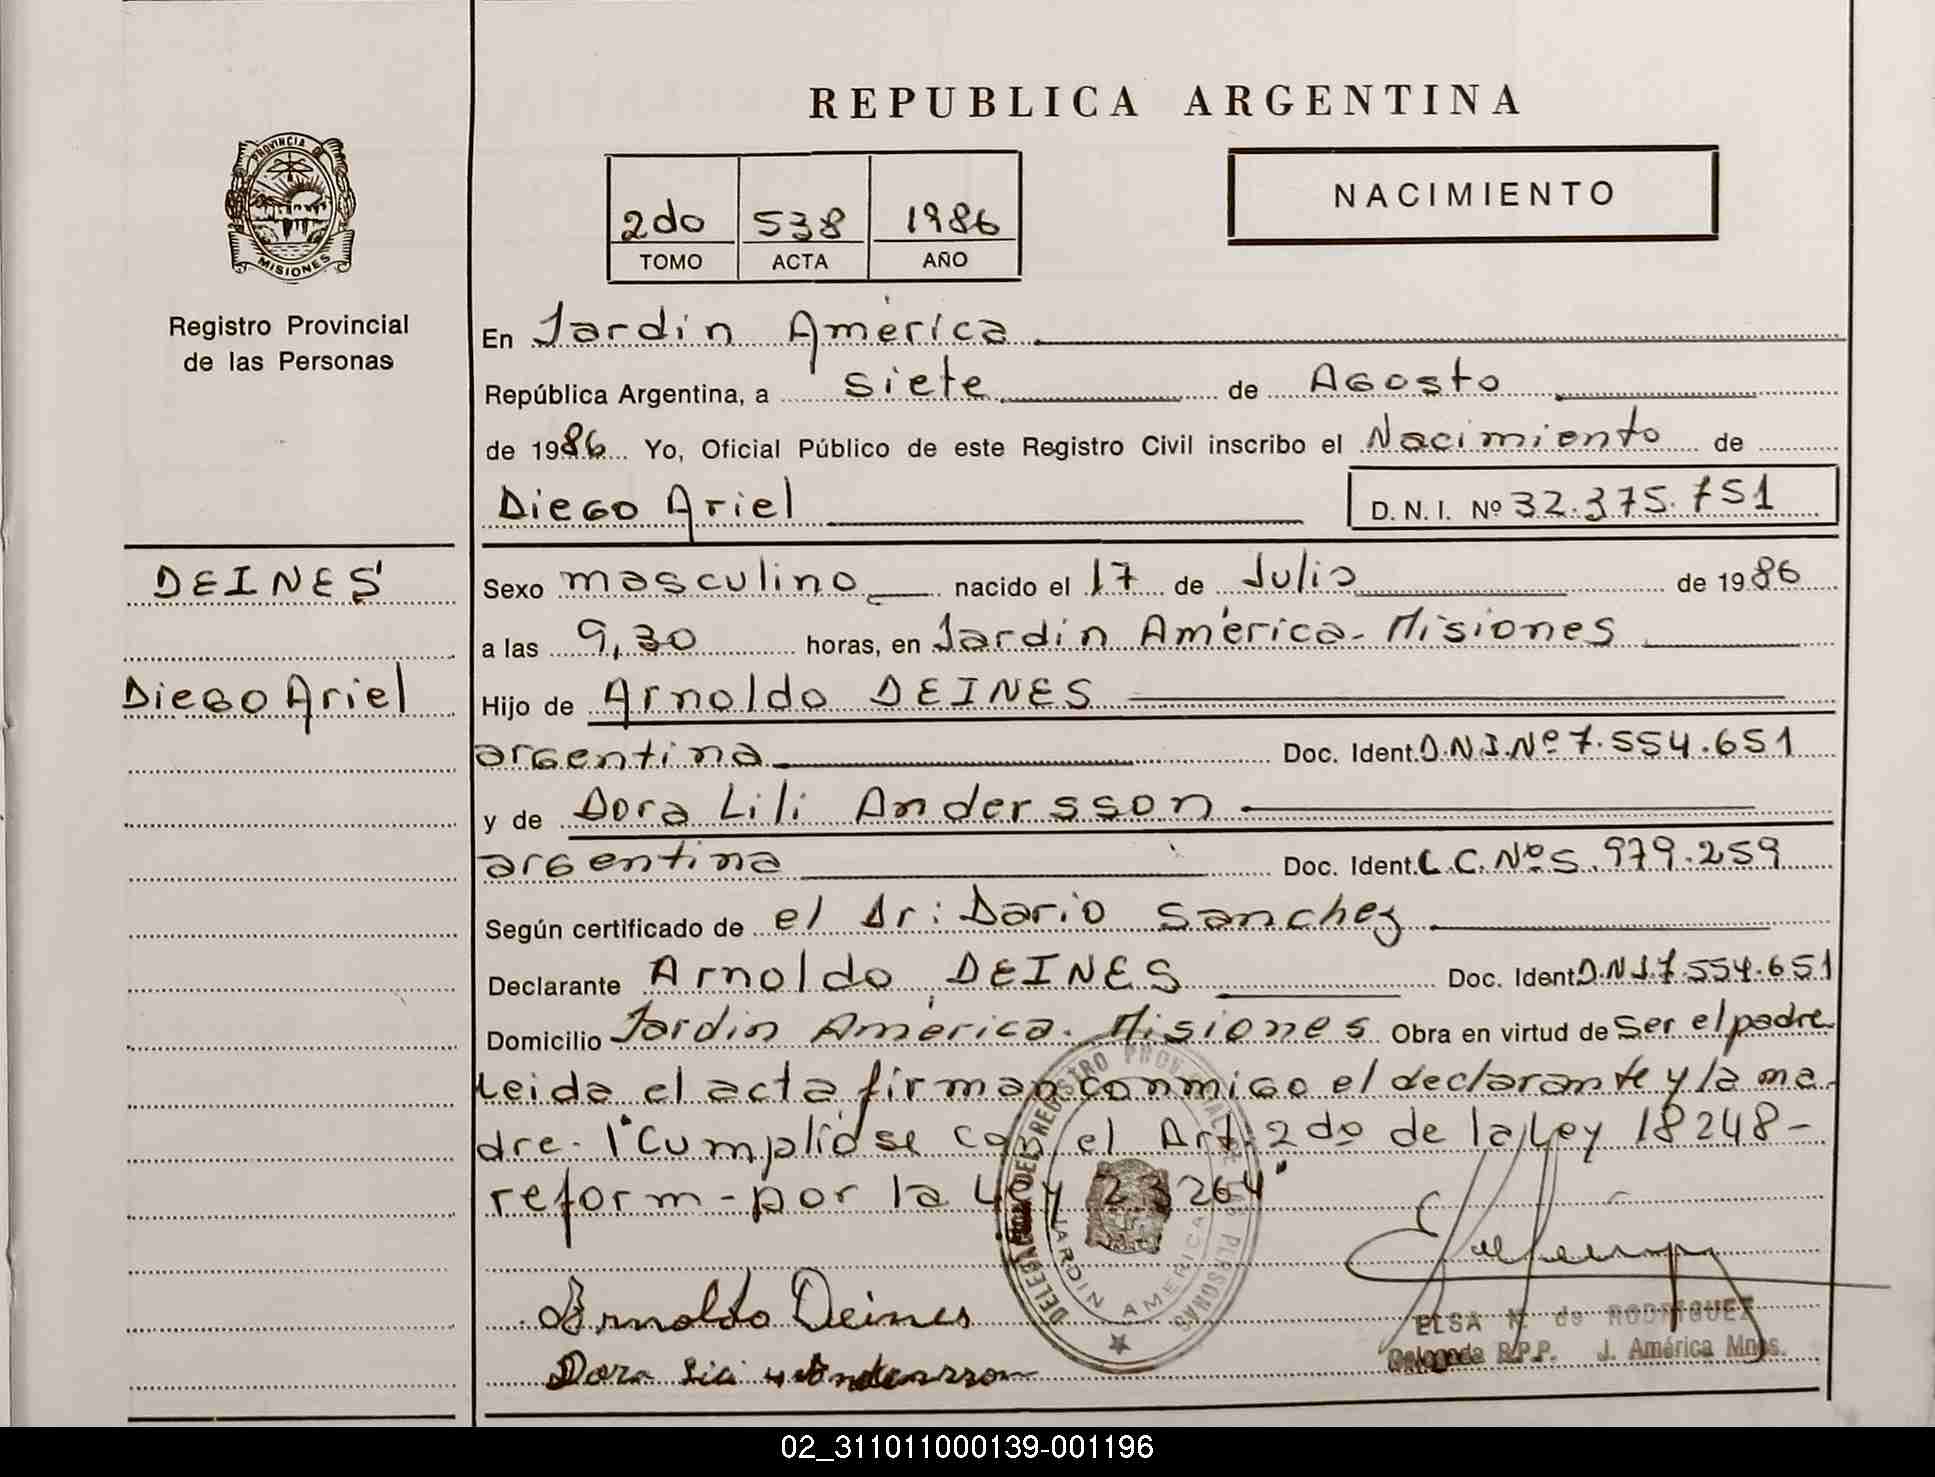 REPUBLICA ARGENTINA
PROVINCIA DE
MISIONES
Registro Provincial
de las Personas
2do 538 1986
TOMO ACTA AÑO
NACIMIENTO
En Jardin América
República Argentina, a siete de Agosto
de 1986 Yo, Oficial Público de este Registro Civil inscribo el Nacimiento de
Diego Ariel D. N. I. Nº 32.375.751
DEINES
Diego Ariel
Sexo masculino nacido el 17 de Julio de 1986
a las 9,30 horas, en Jardin América - Misiones
Hijo de Arnoldo DEINES
argentina Doc. Ident. D.N.I.Nº 7.554.651
y de Dora Lili Andersson
argentina Doc. Ident. L.C.Nº 5.979.259
Según certificado de el Dr: Dario Sanchez
Declarante Arnoldo DEINES Doc. Ident D.N.I 7.554.651
Domicilio Jardin América. Misiones Obra en virtud de Ser el padre
Leida el acta firman conmigo el declarante y la ma-
dre - 1" Cumplióse con el Art. 2do de la Ley 18248 -
reform - por la Ley 23264"
DELEGACION DEL REGISTRO PROVINCIAL DE LAS PERSONAS
JARDIN AMERICA
Arnoldo Deines
Dora Lili Andersson
ELSA N. de RODRIGUEZ
Delegada R.P.P. J. América Mnes.
02_311011000139-001196